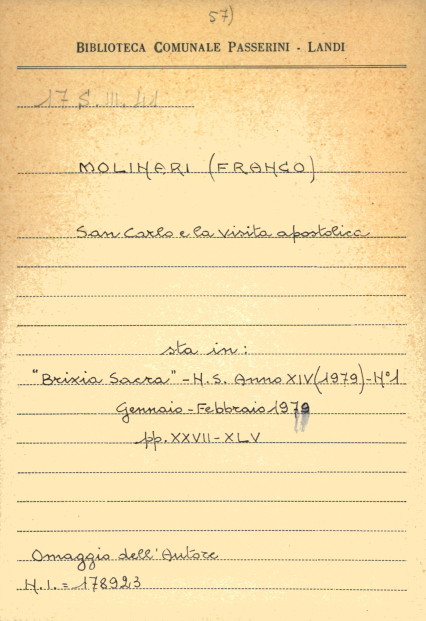 57)
BIBLIOTECA COMUNALE PASSERINI - LANDI
MOLINARI (FRANCO)
San Carlo e la visita apostolica
sta in:
"Brixia Sacra" - N.S. Anno XIV (1979) - N° 1
Gennaio - Febbraio 1979
pp. XXVII - XLV
Omaggio dell'Autore
N.I. = 178923